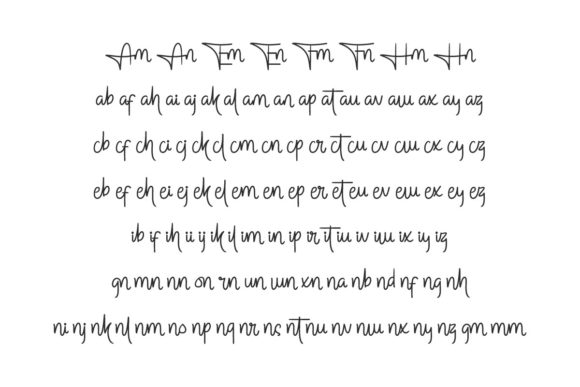 Am An Em En Fm Fn Hm Hn
ab af ah ai aj ak al am an ap at au av aw ax ay az
cb cf ch ci cj ck cl cm cn cp cr ct cu cv cw cx cy cz
eb ef eh ei ej ek el em en ep er et eu ev ew ex ey ez
ib if ih ii ij ik il im in ip ir it iu iv iw ix iy iz
gn mn nn on rn un wn xn na nb nd nf ng nh
ni nj nk nl nm no np nq nr ns nt nu nv nw nx ny nz gm mm